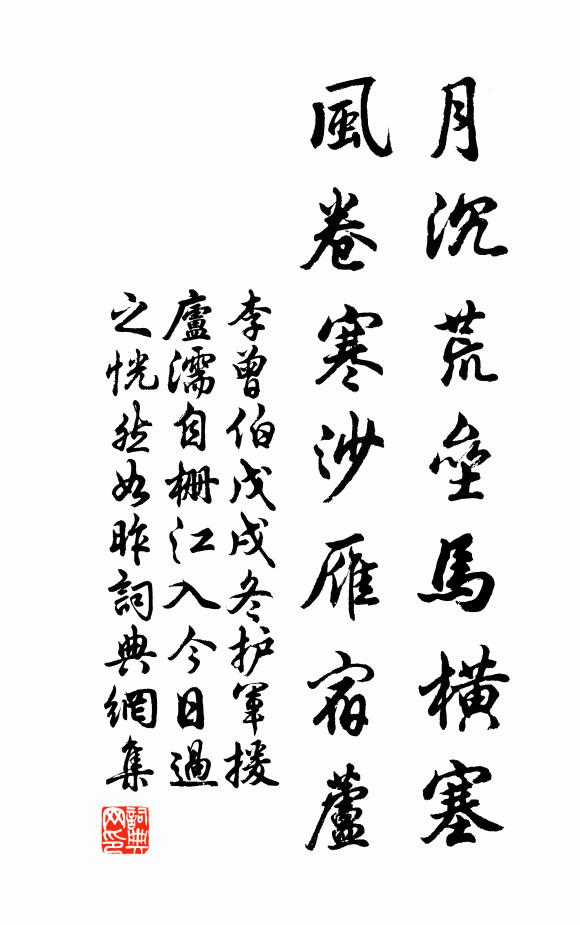 月沉荒壘馬橫塞
風卷寒沙雁宿蘆
李曾伯戊戌冬护軍援
廬濡自栅江入今日過
之恍然如昨詞典網集
詞典网印